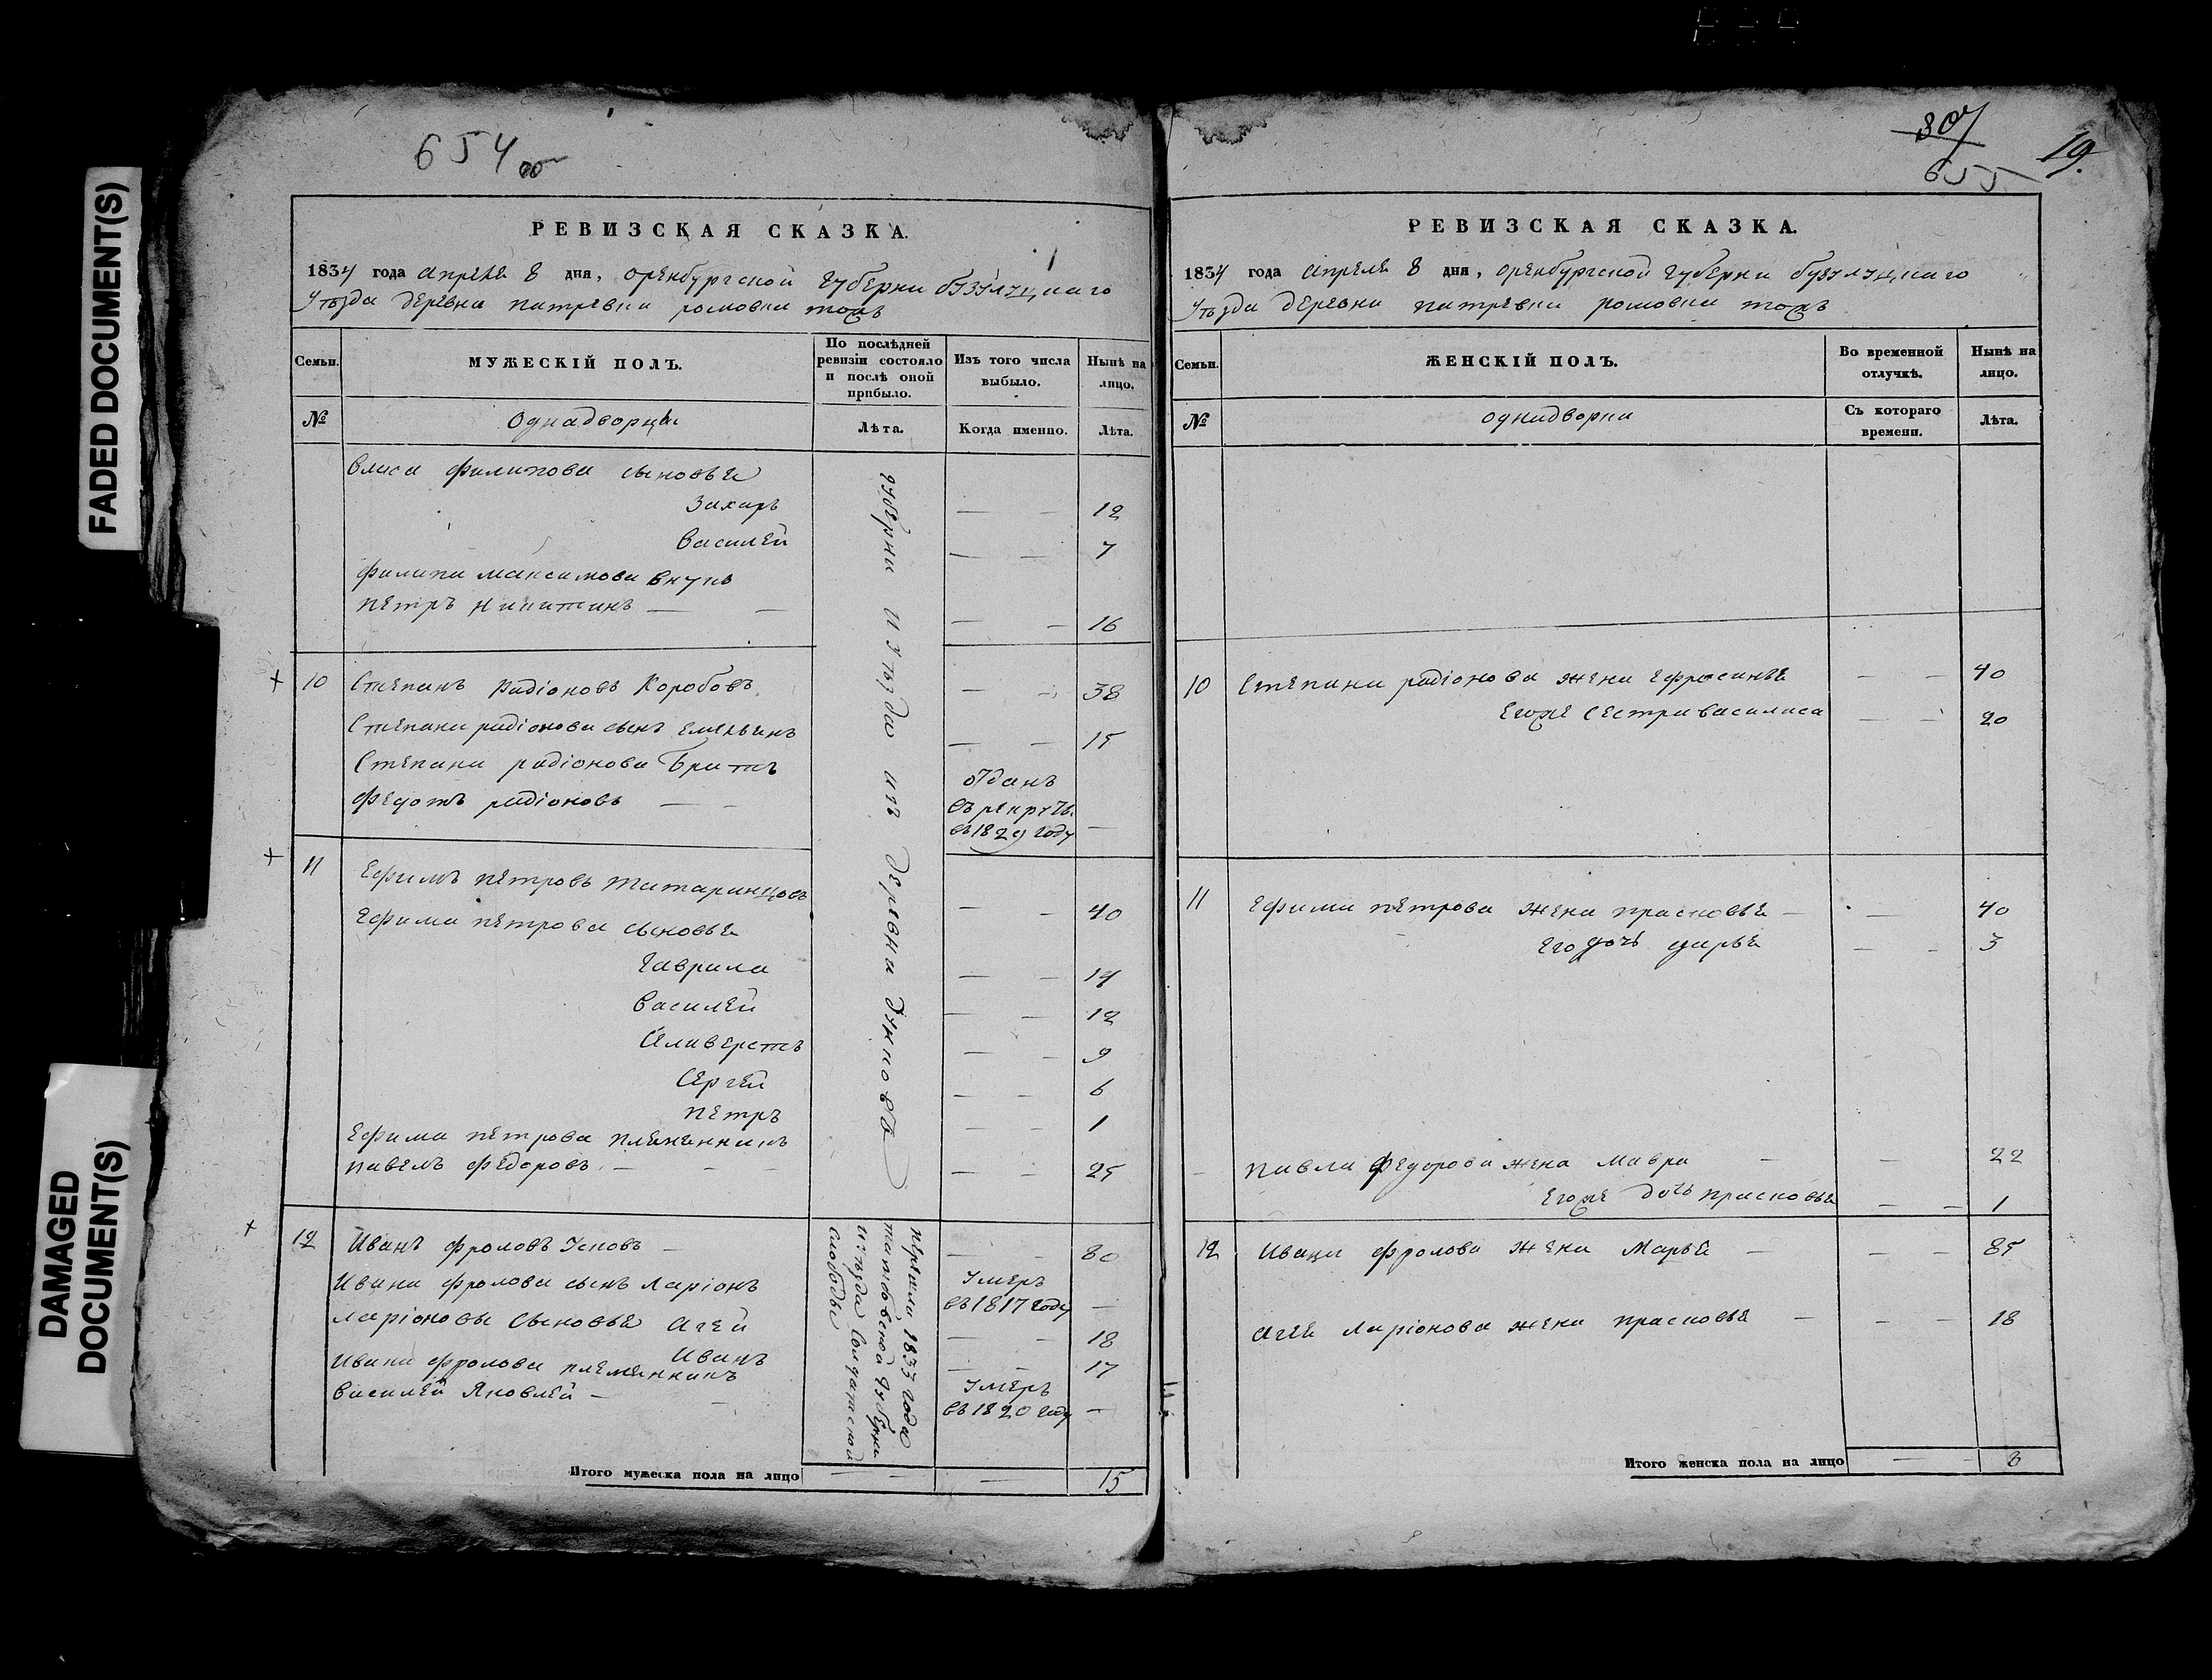 FADED DOCUMENT(S)
DAMAGED
DOCUMENT(S)
654 об
РЕВИЗСКАЯ СКАЗКА.
1834 года апреля 8 дня, оренбургской губерни бузулуцкаго
Уѣзда деревна патревки ромовки тожъ
Семьи. МУЖЕСКІЙ ПОЛЪ. По послѣдней ревизіи состояло и послѣ оной прибыло. Изъ того числа выбыло. Нынѣ на лицо.
№ Однадворцы Лѣта. Когда именно. Лѣта.
филипова сыновья
Захаръ — — 12
Василей — — 7
филипа максимова внукъ
петръ никитинъ — — — — 16
10 Степанъ радіоновъ Коробовъ — — 38
Степана радіонова сынъ емельянъ — — 15
Степана радіонова братъ
федотъ радіоновъ — — отданъ
въ рекруты
въ 1829 году —
11 Ефимъ петровъ татаринцовъ — — 40
Ефима петрова сыновья
Гаврила — — 14
Василей — — 12
Аливерстъ — — 9
Сергей — — 6
петръ — — 1
Ефима петрова племенникъ
павелъ федоровъ — — — — — 25
губерни и уѣзда изъ деревни
12 Иванъ фроловъ Усковъ — — — 80
Ивана фролова сынъ ларіонъ Умеръ
въ 1817 году —
ларіоновы сыновья агей — — 18
Иванъ — — 17
Ивана фролова племянникъ
Василей Яковлей — — Умеръ
въ 1820 году —
перешли 1833 года
губерни
и уѣзда Солдатской
слободы
Итого мужеска пола на лицо — — — 15
807
655
19.
РЕВИЗСКАЯ СКАЗКА.
1834 года апреля 8 дня, оренбургской губерни бузулуцкаго
Уѣзда деревни патревки ромовки тожъ
Семьи. ЖЕНСКІЙ ПОЛЪ. Во временной отлучкѣ. Нынѣ на лицо.
№ однадворки Съ котораго времени. Лѣта.
10 Степана радіонова жена ефросинья — — 40
Егоже сестра василиса — — 20
11 Ефима петрова жена прасковья — — 40
его дочь дарья — — 3
павла федорова жена мавра — — 22
Егоже дочь прасковья — — 1
12 Ивана фролова жена Марья — — — 85
агея ларіонова жена прасковья — — — 18
Итого женска пола на лицо — — 8